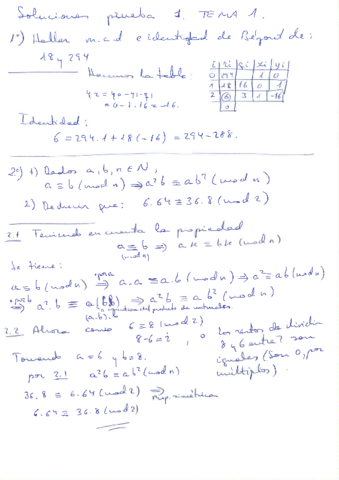 Soluciones prueba 1. TEMA 1.
1º) Hallar m.c.d e identidad de Bézout de:
18 y 294
Hacemos la tabla:
i ri qi xi yi
0 294 1 0
1 18 16 0 1
2 6 3 1 -16
0
y2 = y0 - y1.q1
= 0 - 1.16 = -16.
Identidad:
6 = 294.1 + 18(-16) = 294 - 288.
2º) 1) Dados a, b, n ∈ N,
a ≡ b (mod n) ⇒ a²b ≡ ab² (mod n)
2) Deducir que: 6.64 ≡ 36.8 (mod 2)
2.1 Teniendo en cuenta la propiedad
a ≡ b (mod n) ⇒ a k ≡ b k (mod n)
Se tiene:
a ≡ b (mod n) ⇒ por a a.a ≡ a.b (mod n) ⇒ a² ≡ ab (mod n)
⇒ por b a².b ≡ (a.b).b ⇒ a²b ≡ ab² (mod n)
del producto de naturales.
2.2 Ahora como 6 ≡ 8 (mod 2)
8-6=2, o los restos de dividir
8 y 6 entre 2 son
iguales (son 0, por
múltiplos).
Tomando a=6 y b=8.
por 2.1 a²b ≡ ab² (mod n)
36.8 ≡ 6.64 (mod 2) ⇒ simétrica
6.64 ≡ 36.8 (mod 2)